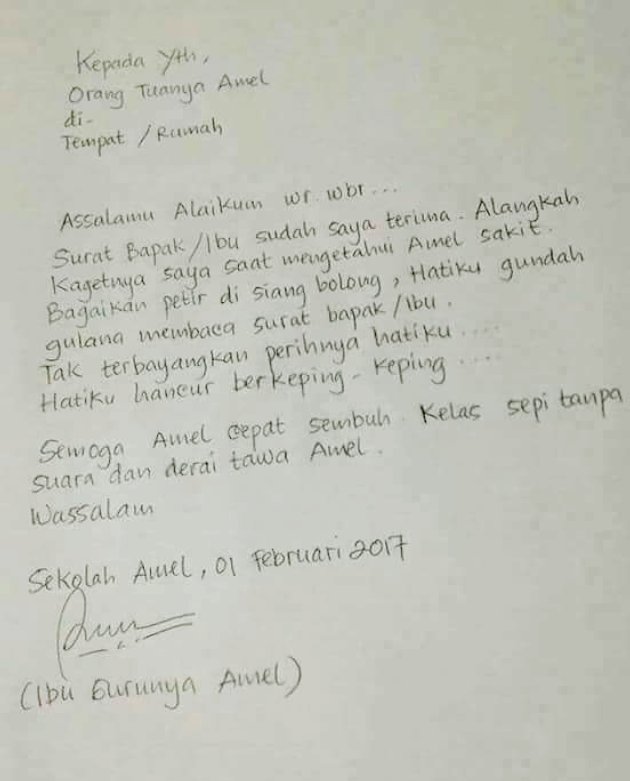 Kepada Yth,
Orang Tuanya Amel
di-
Tempat / Rumah
Assalamu Alaikum wr. wbr...
Surat Bapak/Ibu sudah saya terima. Alangkah
Kagetnya saya saat mengetahui Amel sakit.
Bagaikan petir di siang bolong, Hatiku gundah
gulana membaca surat bapak/Ibu.
Tak terbayangkan perihnya hatiku....
Hatiku hancur berkeping-keping....
Semoga Amel cepat sembuh. Kelas sepi tanpa
suara dan derai tawa Amel.
Wassalam
Sekolah Amel, 01 Februari 2017
(Ibu Gurunya Amel)